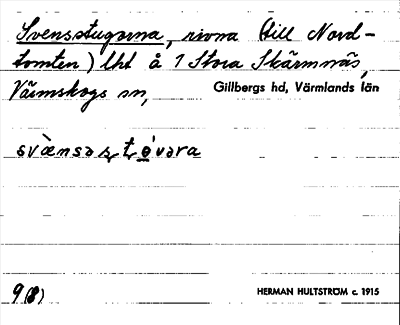 Svensstugorna, rivna (till Nord-
tomten) lht å 1 Stora Skärmnäs,
Värmskogs sn, Gillbergs hd, Värmlands län
9(8) HERMAN HULTSTRÖM c. 1915